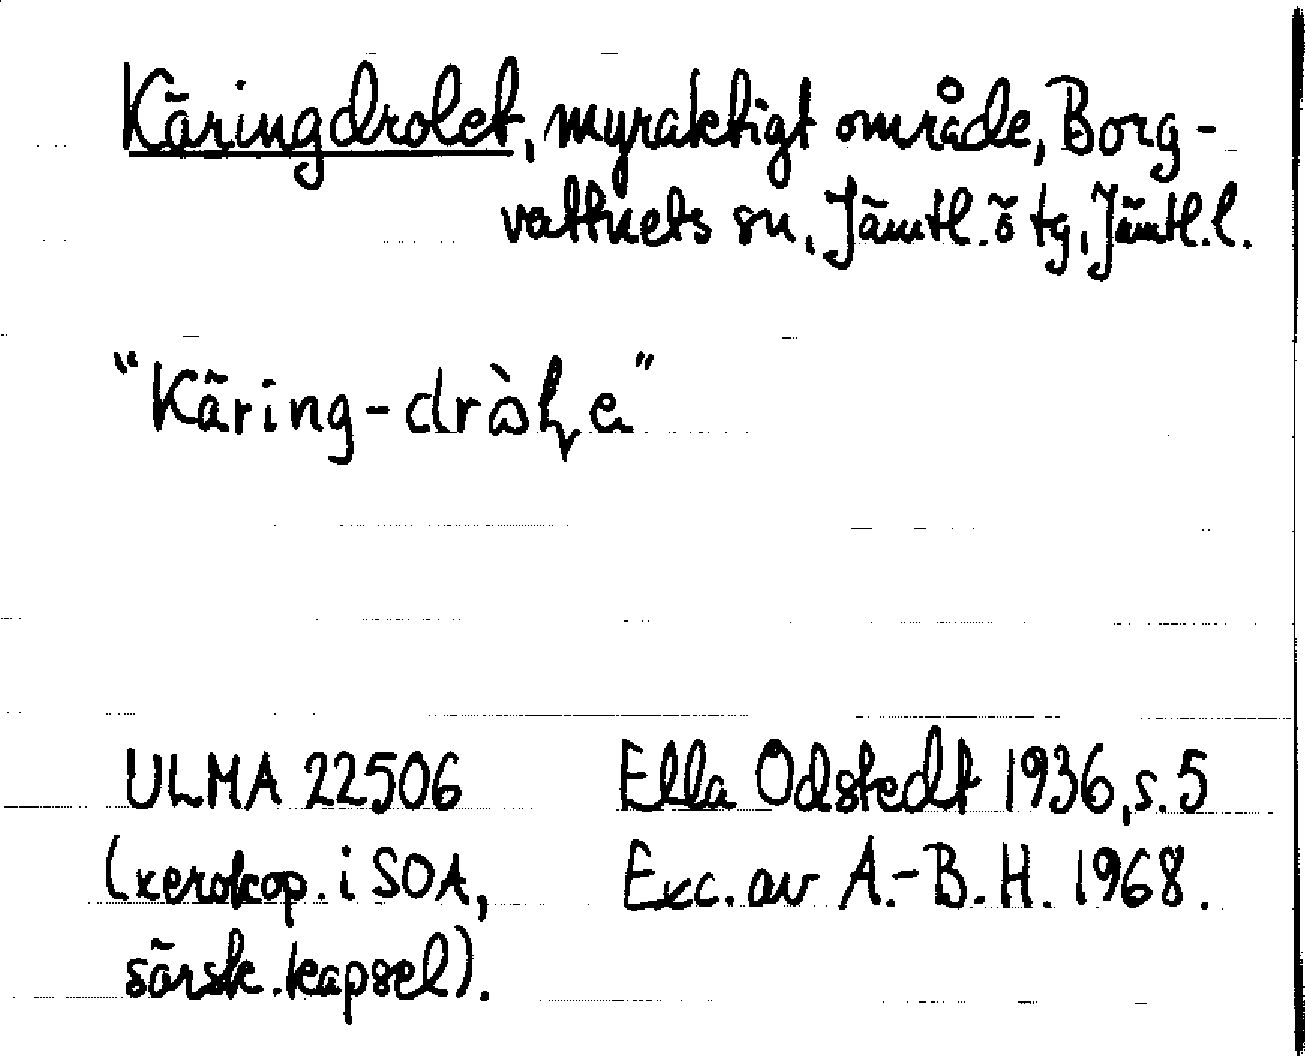 Käringdrolet, myraktigt område, Borg-
vattnets sn, Jämtl. ö tg, Jämtl. l.
"Käring-
ULMA 22506
(xerokop. i SOA,
särsk. kapsel).
Ella Odstedt 1936, s. 5
Exc. av A.-B. H. 1968.